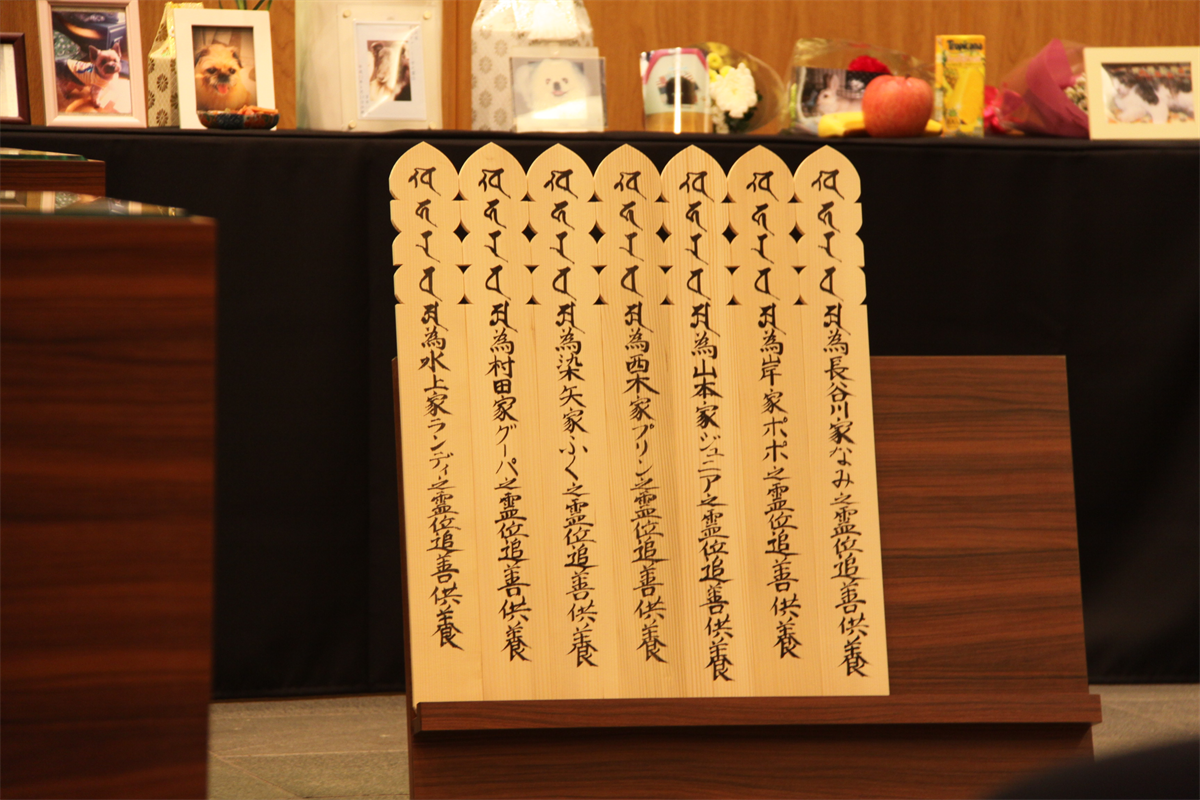 為長谷川家なみ之霊位追善供養
為岸家ポポ之霊位追善供養
為山本家ジュニア之霊位追善供養
為西木家プリン之霊位追善供養
為染矢家ふく之霊位追善供養
為村田家グーパ之霊位追善供養
為水上家ランディ之霊位追善供養
Tropicana